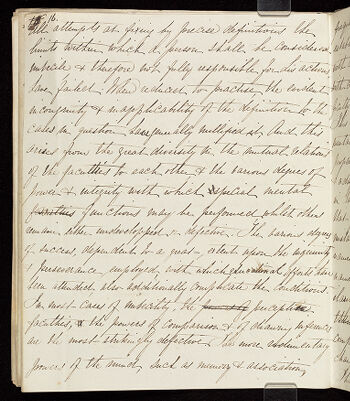 16.
All attempts at fixing by precise definitions the
limits within which a person shall be considered
imbecile & therefore not fully responsible for his actions
have failed. When reduced to practise the evident
incongruity & inapplicability of the definition to the
cases in question has generally nullified it. And this
arises from the great diversity in the mutual relations
of the faculties to each other & the various degrees of
power & integrity with which special mental
faculties functions may be performed whilst others
remain either undeveloped or defective. The various degrees
of success, dependent to a great extent upon the ingenuity
& perseverance employed, with which educational efforts have
been attended also additionally complicate the conditions.
In most cases of imbecility, the perceptive
faculties, & the powers of comparison & of drawing inferences
are the most strikingly defective. The more rudimentary
powers of the mind, such as memory & association,